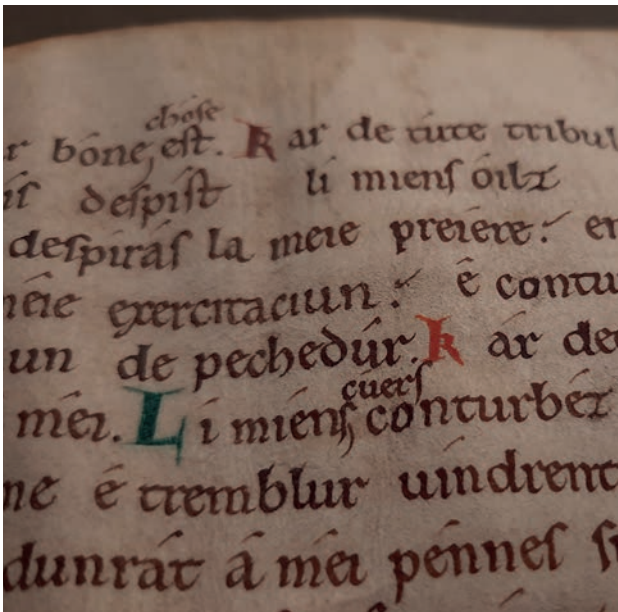 chose
r bóne, est. Kar de tute tribul
is despist li miens óilz
despirás la meie preiere. en
méie exercitaciun. ê contu
un de pechedúr. Kár de
cuers
méi. Li miens conturbéz
ne é tremblur uindrent
dunrát á méi pénnes